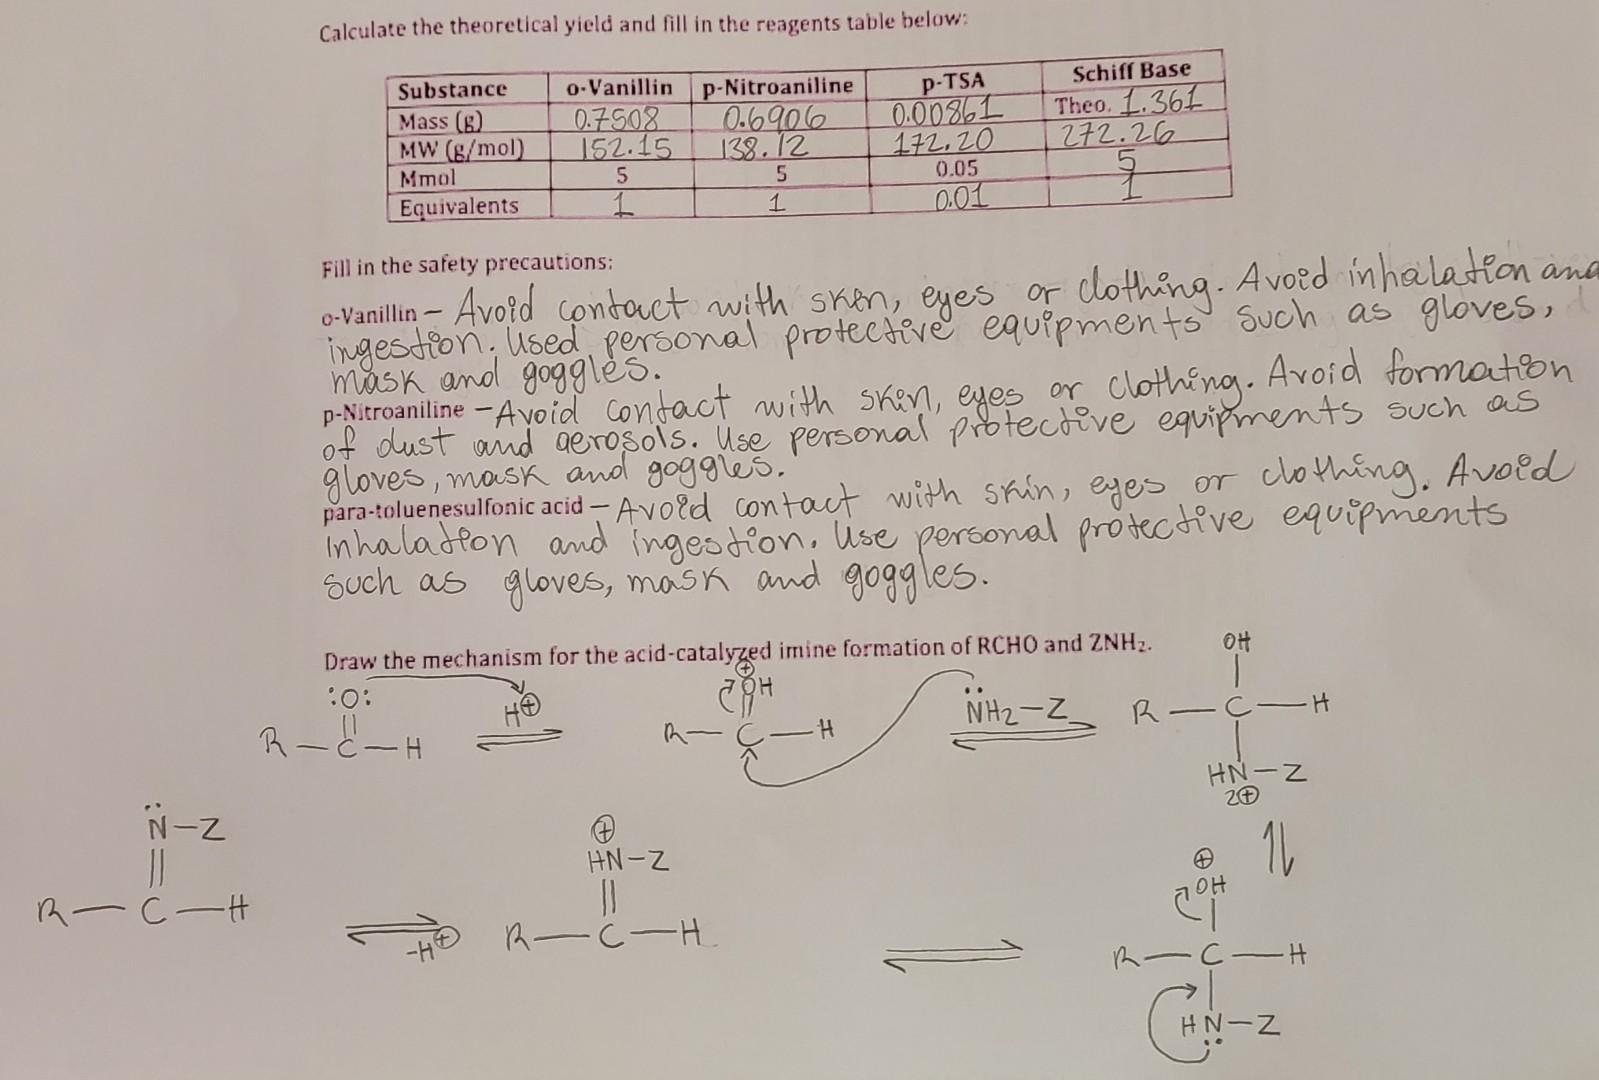 Calculate the theoretical yield and fill in the reagents table below:
Substance o-Vanillin p-Nitroaniline p-TSA Schiff Base
Mass (g) 0.7508 0.6906 0.00861 Theo. 1.361
MW (g/mol) 152.15 138.12 172.20 272.26
Mmol 5 5 0.05 5
Equivalents 1 1 0.01 1
Fill in the safety precautions:
o-Vanillin – Avoid contact with sken, eyes or clothing. Avoid inhalation and
ingestion. Used personal protective equipments such as gloves,
mask and goggles.
p-Nitroaniline – Avoid contact with skin, eyes or clothing. Avoid formation
of dust and aerosols. Use personal protective equipments such as
gloves, mask and goggles.
para-toluenesulfonic acid – Avoid contact with skin, eyes or clothing. Avoid
inhalation and ingestion. Use personal protective equipments
such as gloves, mask and goggles.
Draw the mechanism for the acid-catalyzed imine formation of RCHO and ZNH₂.
:O: H⊕ ⊕ OH N̈H₂–Z OH
R – C – H R – C – H R – C – H
HN – Z
2⊕
N̈ – Z ⊕ ⊕
HN – Z OH
R – C – H -H⊕ R – C – H R – C – H
HN̈ – Z